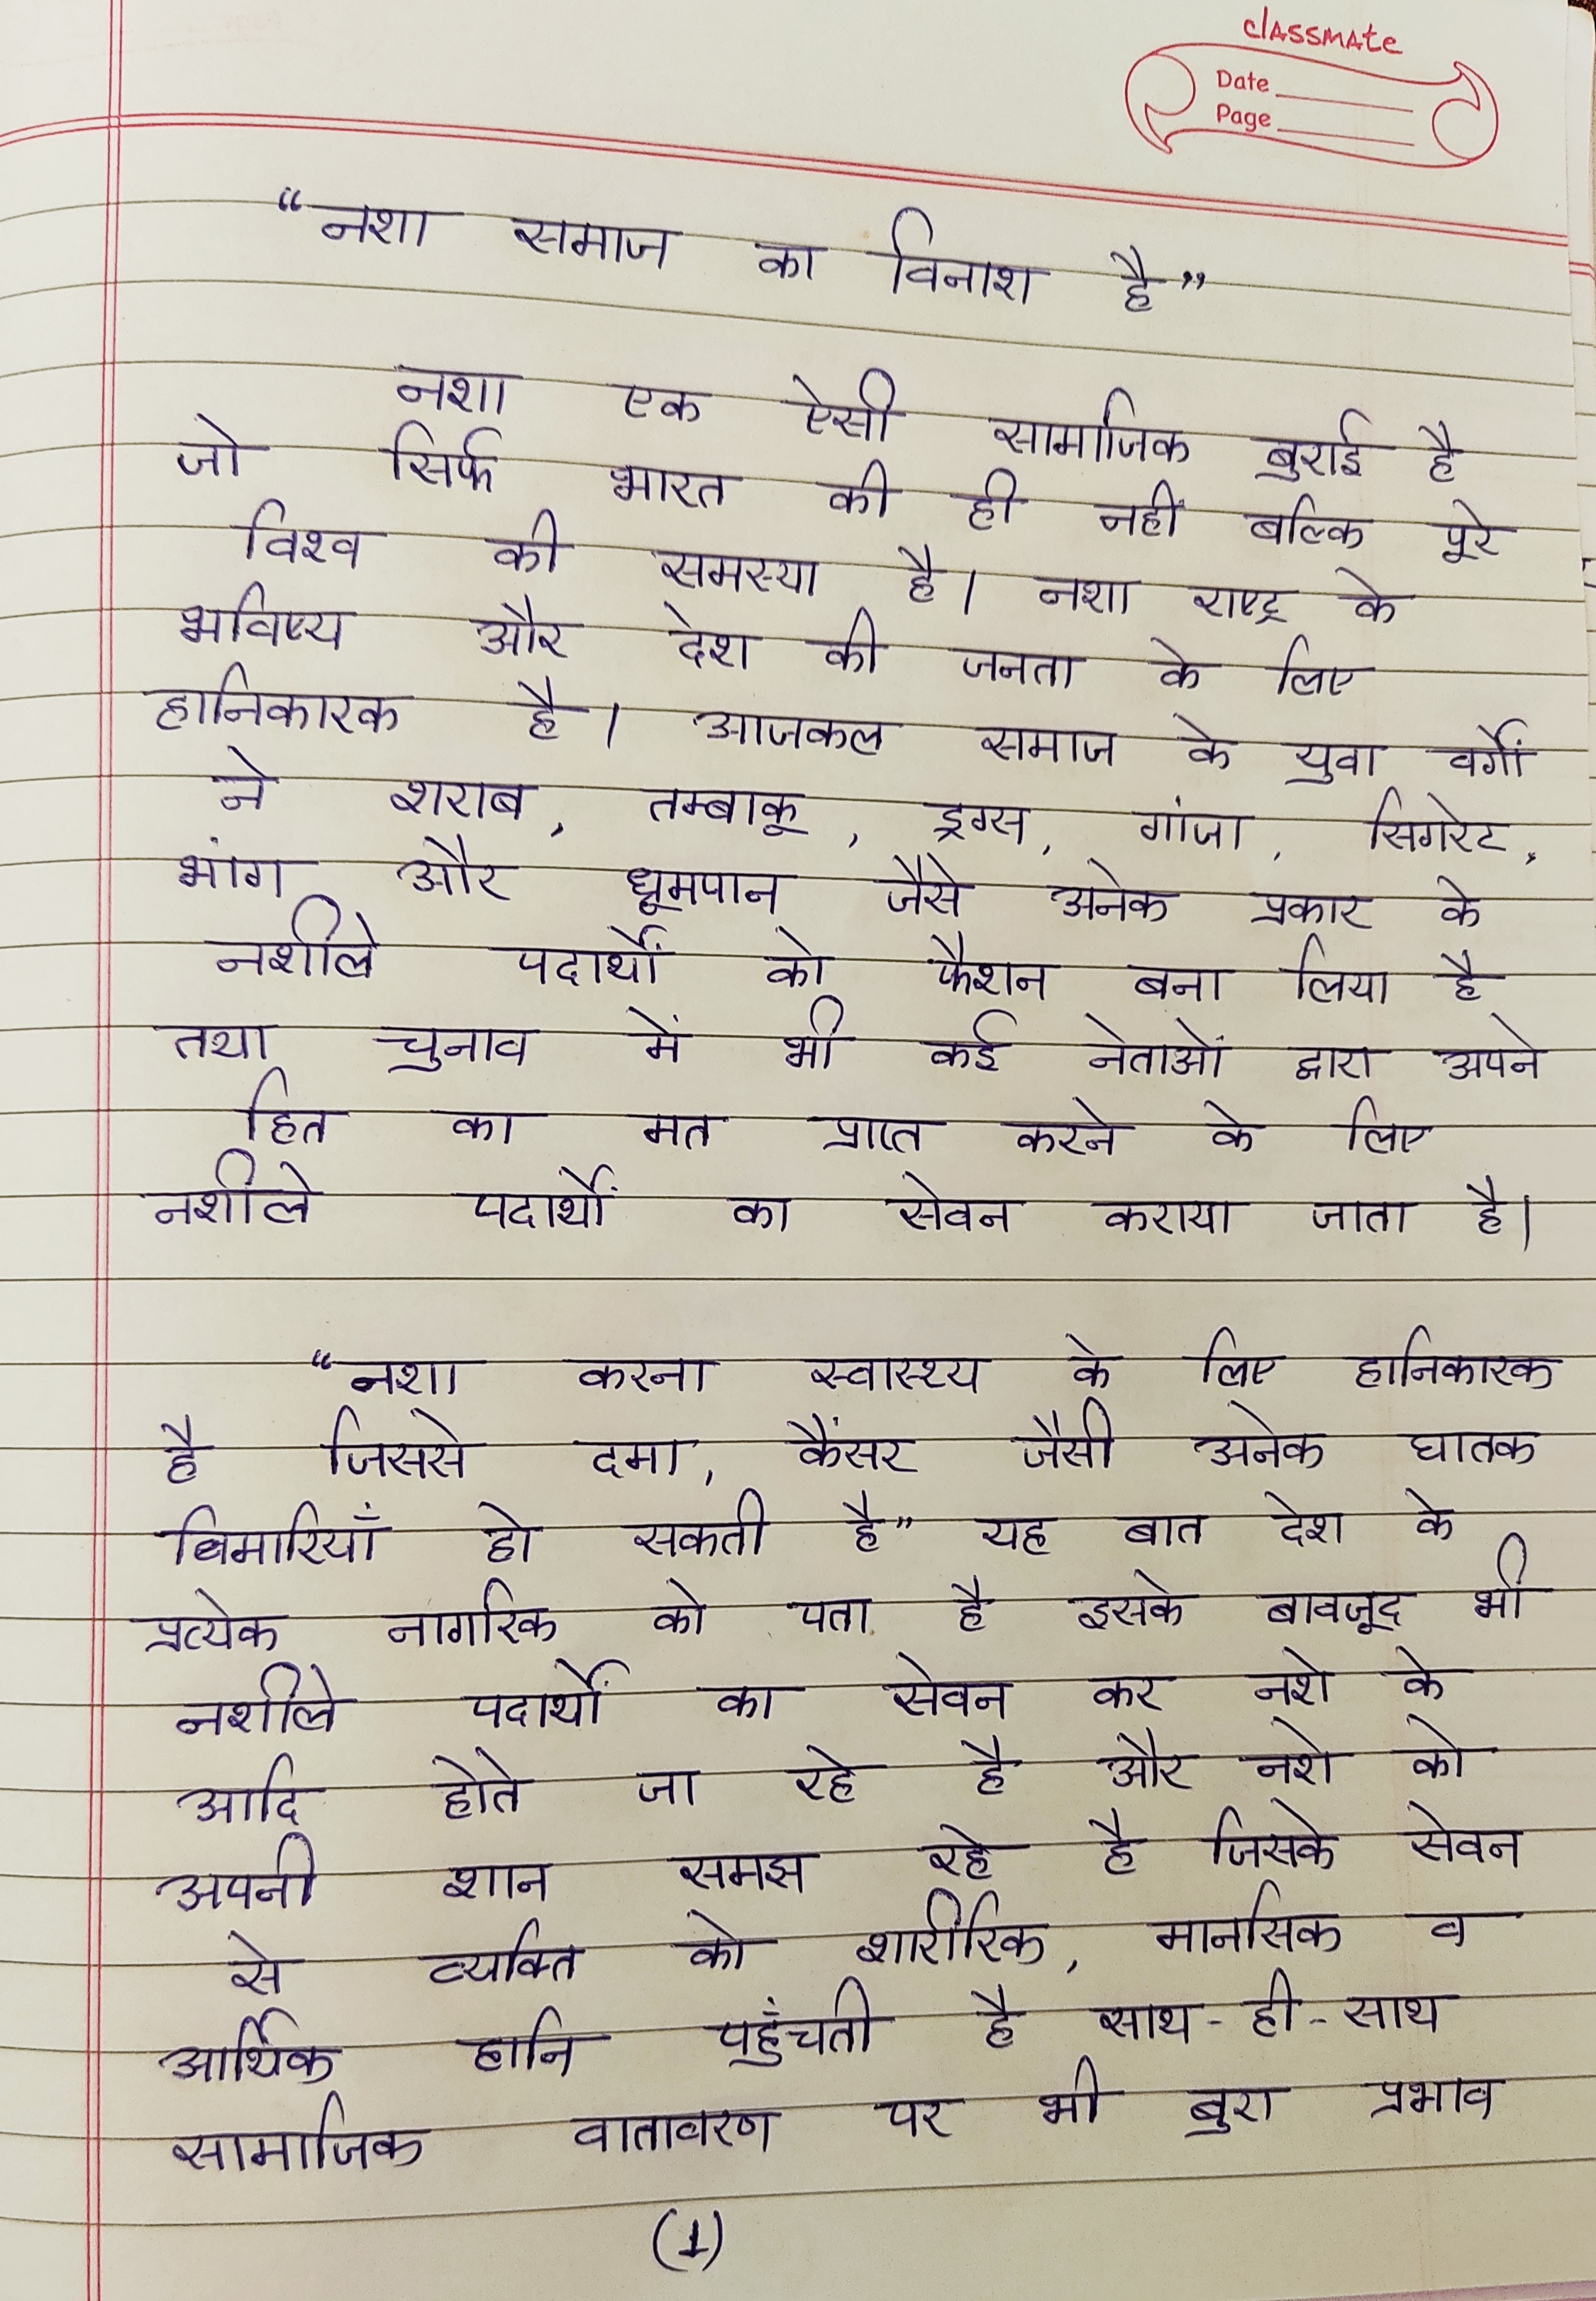 classmate
Date
Page
“नशा समाज का विनाश है”
नशा एक ऐसी सामाजिक बुराई है
जो सिर्फ भारत की ही नहीं बल्कि पूरे
विश्व की समस्या है। नशा राष्ट्र के
भविष्य और देश की जनता के लिए
हानिकारक है। आजकल समाज के युवा वर्गों
ने शराब, तम्बाकू, ड्रग्स, गांजा, सिगरेट,
भांग और धूमपान जैसे अनेक प्रकार के
नशीले पदार्थों को फैशन बना लिया है
तथा चुनाव में भी कई नेताओं द्वारा अपने
हित का मत प्राप्त करने के लिए
नशीले पदार्थों का सेवन कराया जाता है।
“नशा करना स्वास्थ्य के लिए हानिकारक
है जिससे दमा, कैंसर जैसी अनेक घातक
बिमारियाँ हो सकती है” यह बात देश के
प्रत्येक नागरिक को पता है इसके बावजूद भी
नशीले पदार्थों का सेवन कर नशे के
आदि होते जा रहे है और नशे को
अपनी शान समझ रहे है जिसके सेवन
से व्यक्ति को शारीरिक, मानसिक व
आर्थिक हानि पहुँचती है साथ-ही-साथ
सामाजिक वातावरण पर भी बुरा प्रभाव
(1)